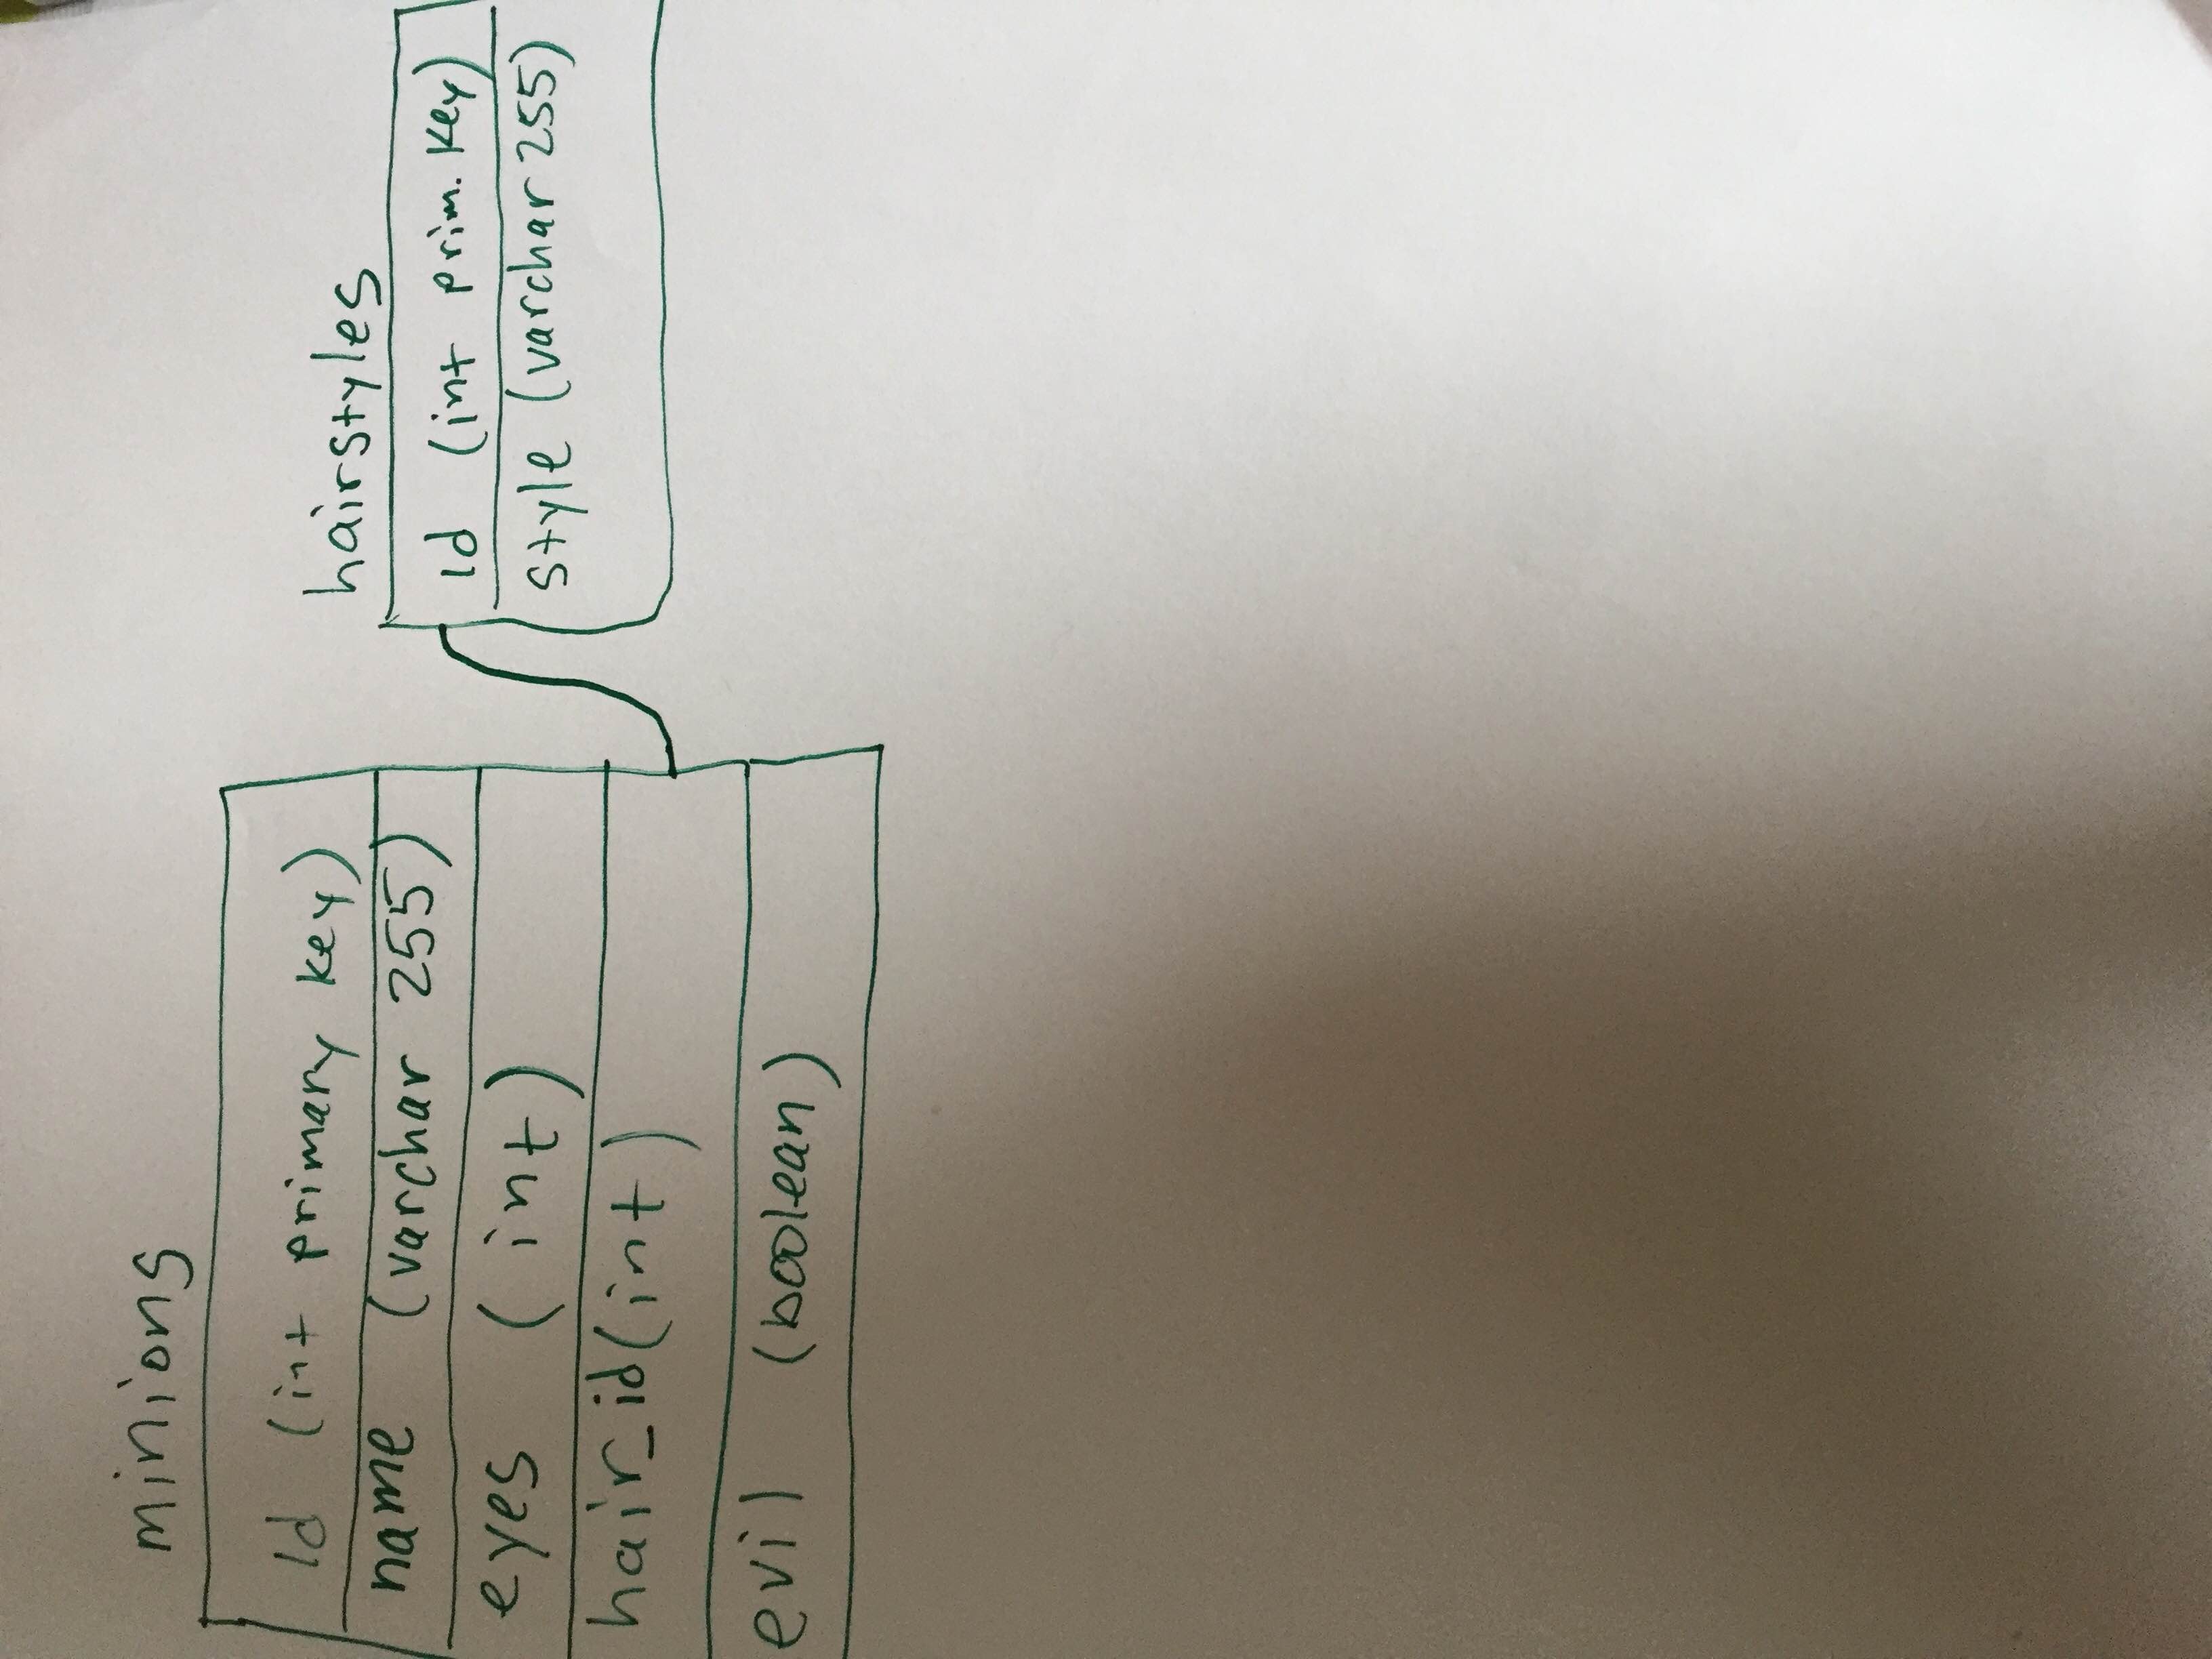 minions
Id (int primary key)
name (varchar 255)
eyes (int)
hair_id (int)
evil (boolean)
hairstyles
Id (int prim. key)
style (varchar 255)